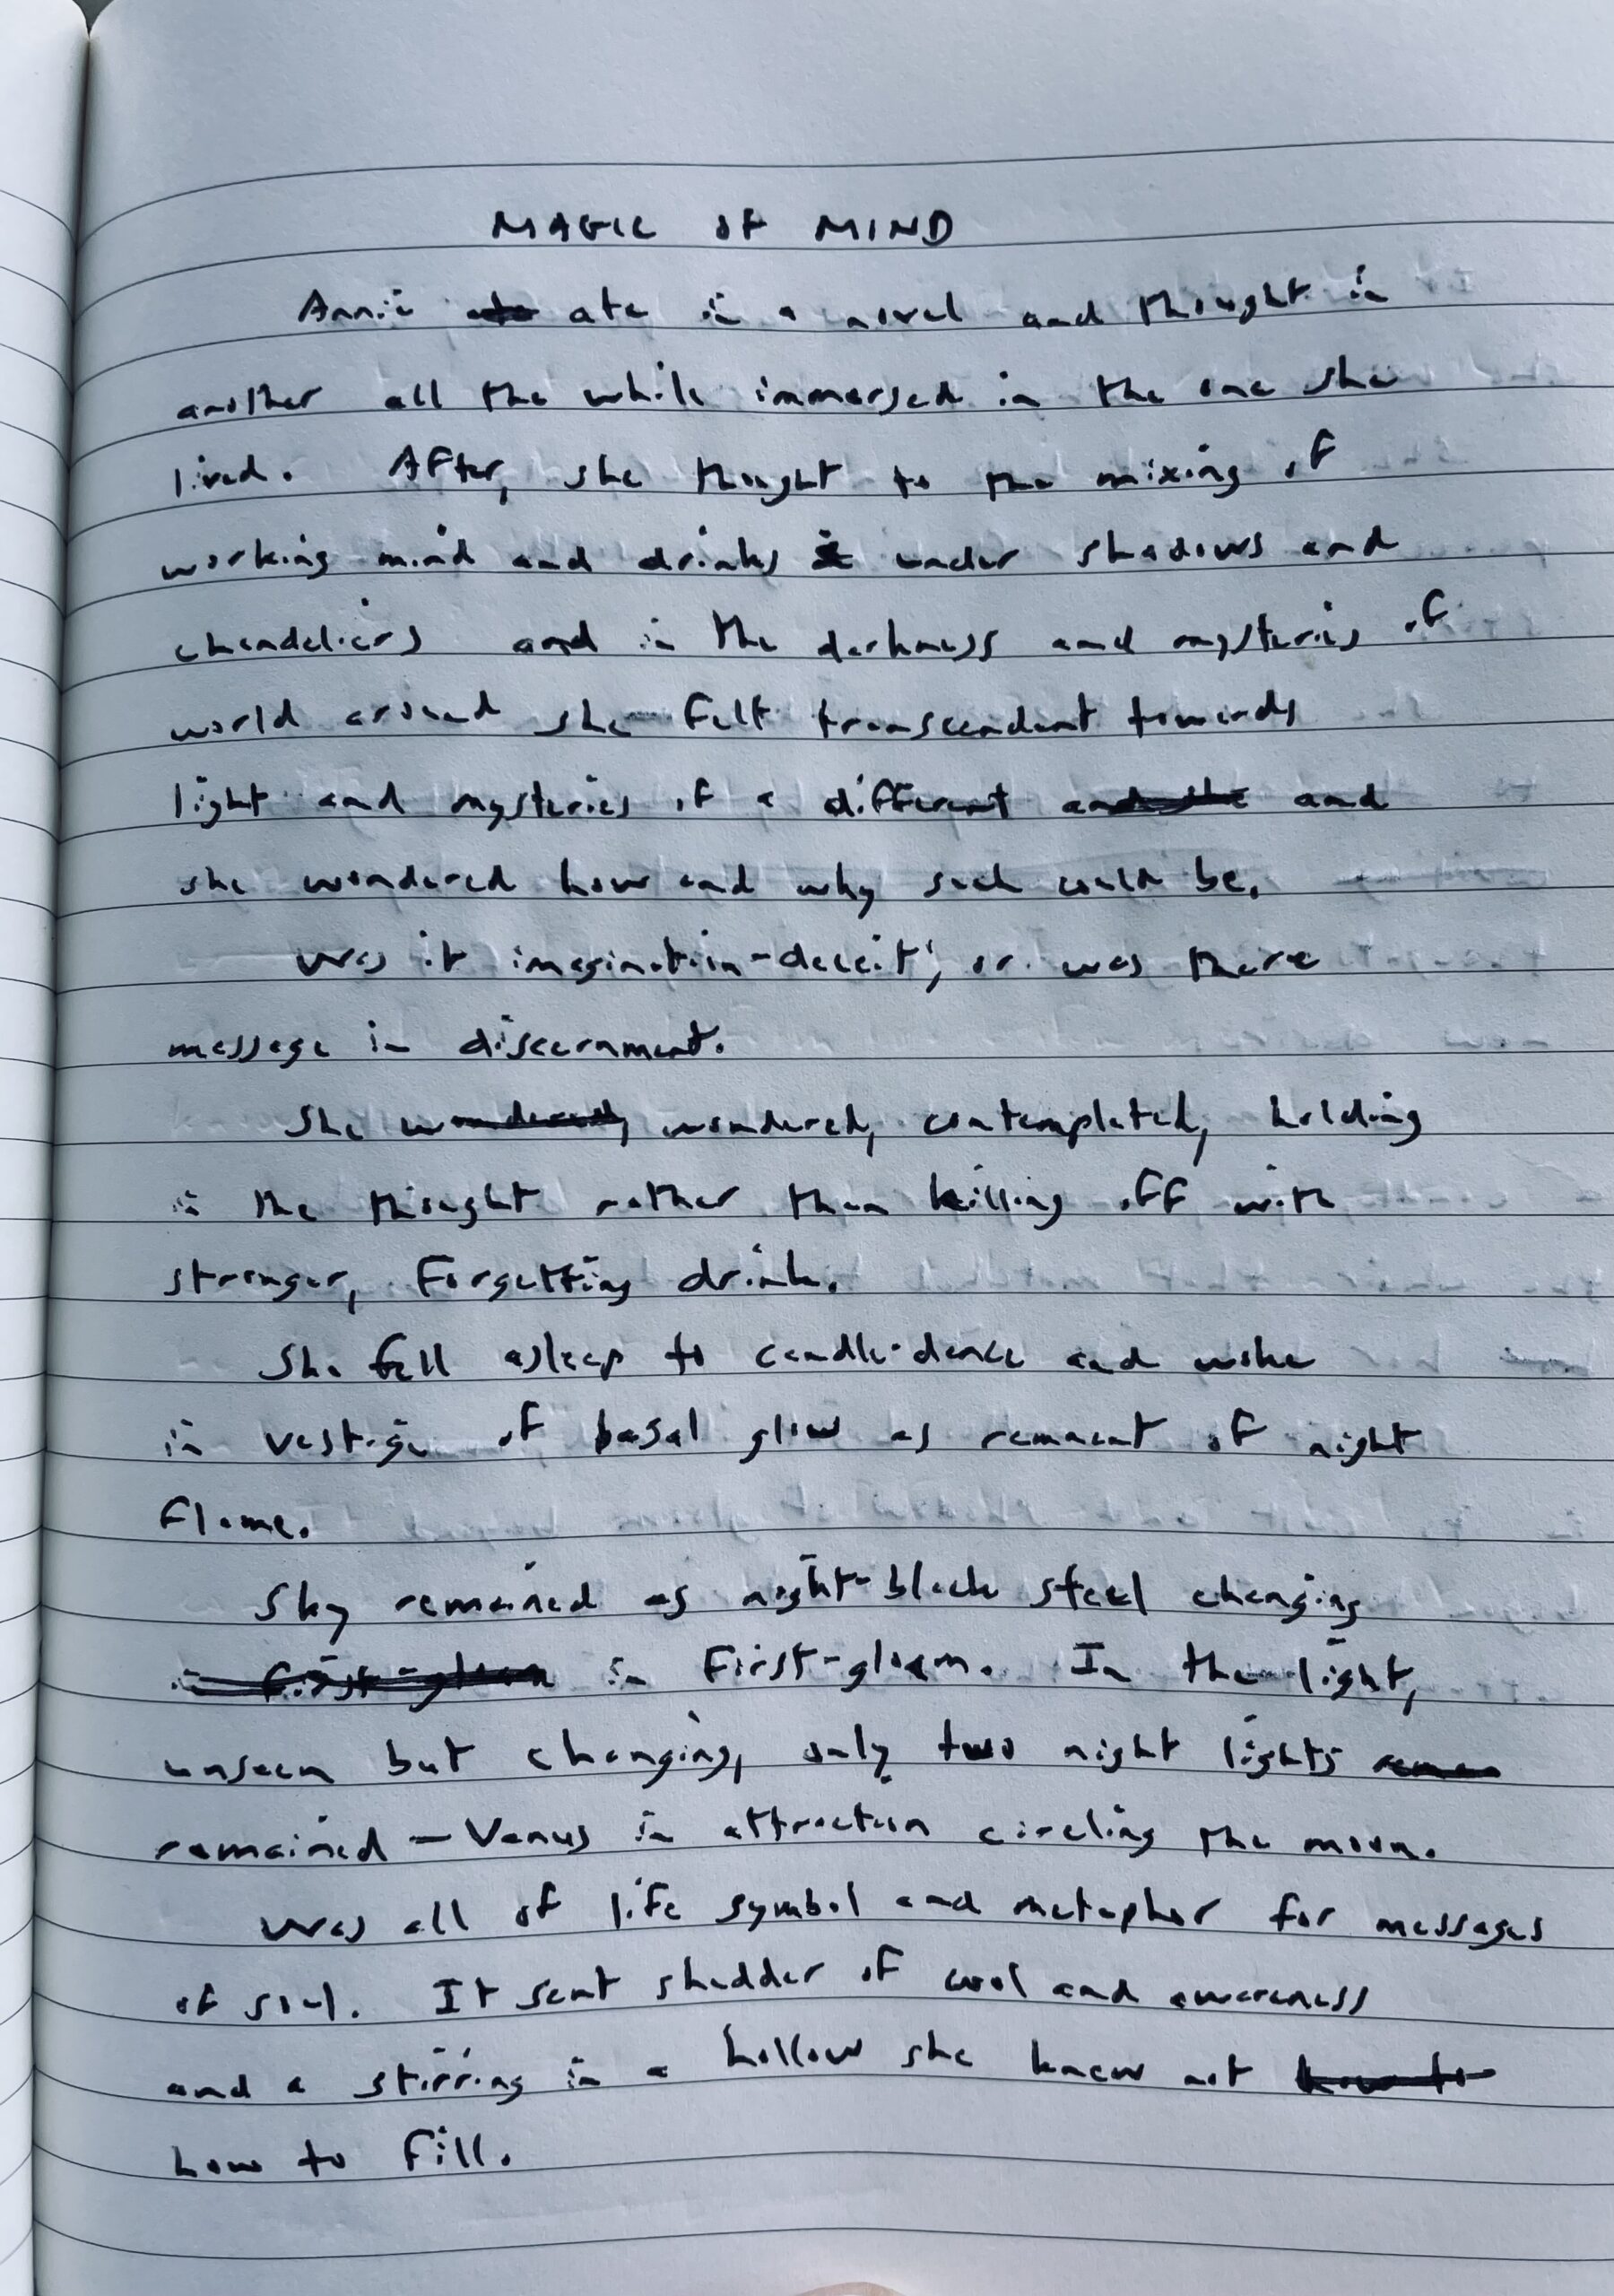 MAGIC OF MIND
Annie ate in a novel and thought in
another all the while immersed in the one she
lived. After, she thought to the mixing of
working mind and drinks under shadows and
chandeliers and in the darkness and mysteries of
world around she felt transcendent towards
light and mysteries of a different and she and
she wondered how and why such could be.
Was it imagination-deceit, or was there
message in discernment.
She wondered, wondered, contemplated, holding
in the thought rather than killing off with
stronger, forgetting drink.
She fell asleep to candle-dance and woke
in vestige of basal glow as remnant of night
flame.
Sky remained as night-black steel changing
in first-gloam in first-gloam. In the light,
unseen but changing, only two night lights
remained - Venus in attraction circling the moon.
Was all of life symbol and metaphor for messages
of soul. It sent shudder of cool and awareness
and a stirring in a hollow she knew not how to
how to fill.